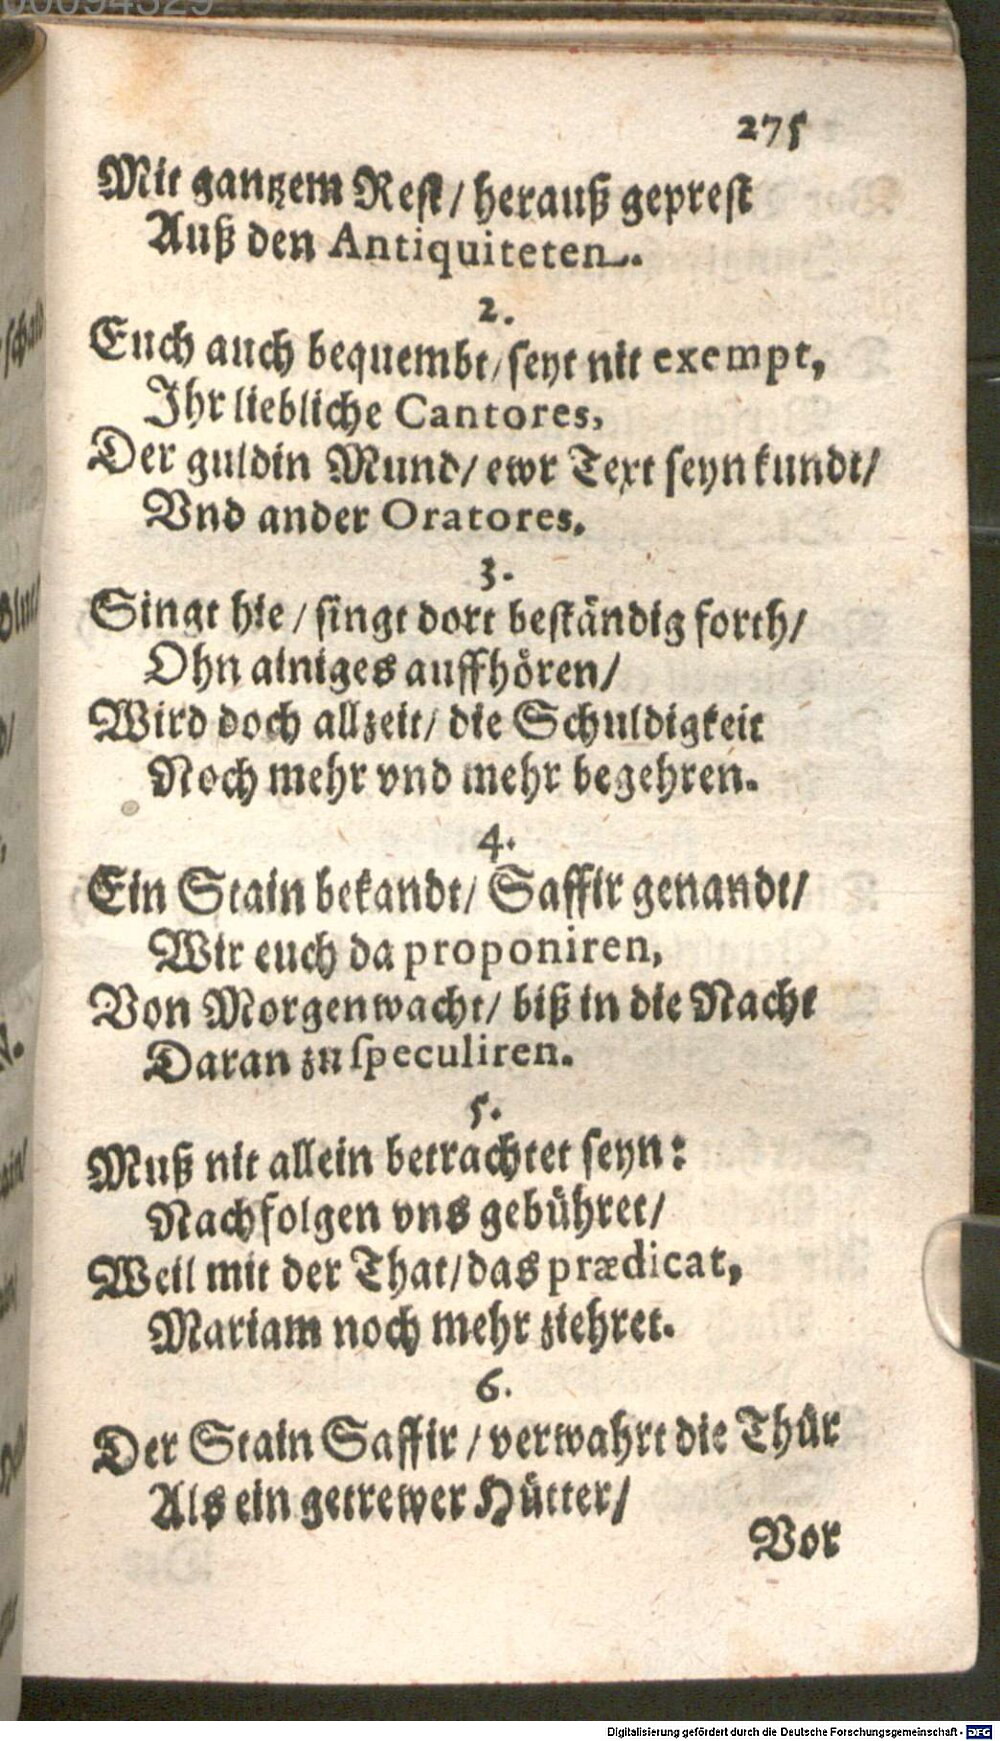 00094329
275
Mit gantzem Rest / herauß geprest
Auß den Antiquiteten.
2.
Euch auch bequembt / seyt nit exempt,
Ihr liebliche Cantores,
Der guldin Mund / ewr Text seyn kundt /
Vnd ander Oratores.
3.
Singt hie / singt dort beständig forth /
Ohn ainiges auffhören /
Wird doch allzeit / die Schuldigkeit
Noch mehr vnd mehr begehren.
4.
Ein Stain bekandt / Saffir genandt /
Wir euch da proponiren,
Von Morgenwacht / biß in die Nacht
Daran zu speculiren.
5.
Muß nit allein betrachtet seyn:
Nachfolgen vns gebühret /
Weil mit der That / das prædicat,
Mariam noch mehr ziehret.
6.
Der Stain Saffir / verwahrt die Thür
Als ein getrewer Hütter /
Vor
Digitalisierung gefördert durch die Deutsche Forschungsgemeinschaft - DFG